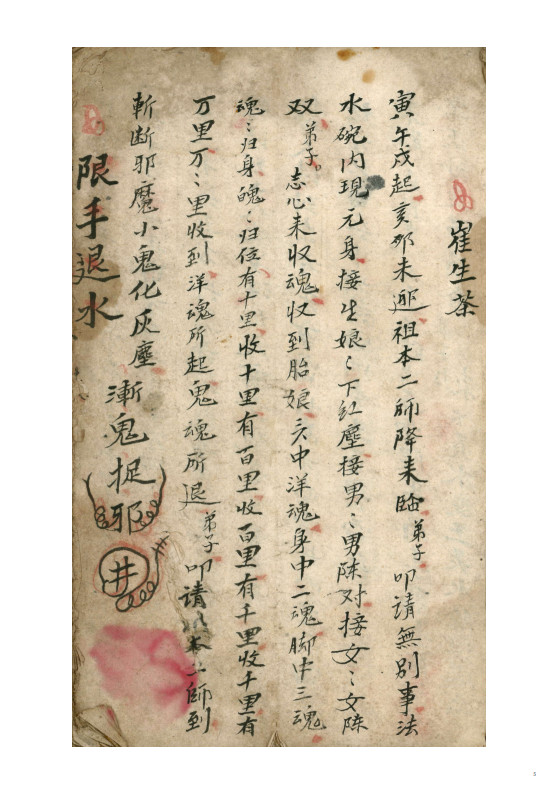 崔生茶
寅午戌起亥卯未迎祖本二師降来临弟子叩請無別事法
水碗内現元身接生娘〻下紅塵接男〻男陈对接女〻女陈
双弟子志心来収魂収到胎娘中洋魂身中二魂脚中三魂
魂〻归身魄〻归位有十里收十里有百里收百里有千里收千里有
万里万〻里收到洋魂所起鬼魂所退弟子叩請本二師到
斬断邪魔小鬼化灰塵
漸鬼捉邪井
限手退水